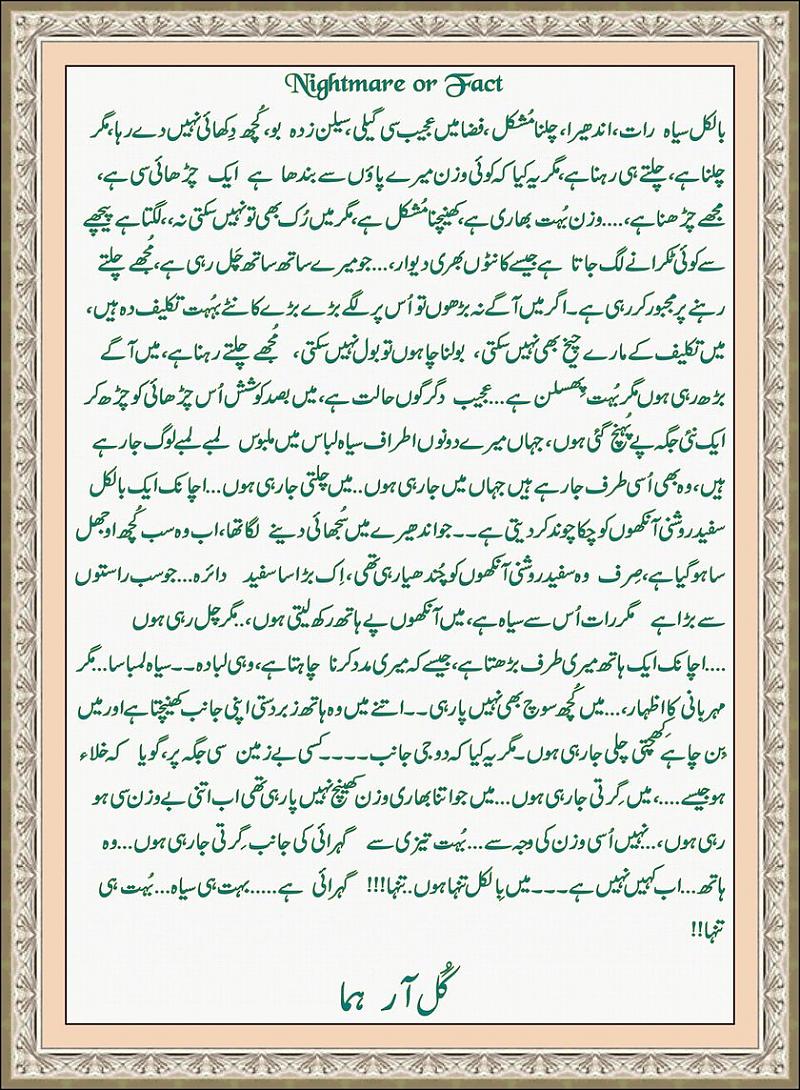 Nightmare or Fact
بالکل سیاہ رات،اندھیرا،چلنا مُشکل،فضا میں عجیب سی گیلی،سیلن زدہ بو،کُچھ دِکھائی نہیں دے رہا،مگر
چلنا ہے،چلتے ہی رہنا ہے،مگر یہ کیا کہ کوئی وزن میرے پاؤں سے بندھا ہے ایک چڑھائی سی ہے،
مجھے چڑھنا ہے،....وزن بُہت بھاری ہے،کھینچنا مُشکل ہے،مگر میں رُک بھی تو نہیں سکتی نہ،،لگتا ہے پیچھے
سے کوئی ٹکرانے لگ جاتا ہے جیسے کانٹوں بھری دیوار،...جو میرے ساتھ ساتھ چَل رہی ہے،مُجھے چلتے
رہنے پر مجبور کر رہی ہے۔اگر میں آگے نہ بڑھوں تو اُس پر لگے بڑے بڑے کانٹے بہُت تکلیف دہ ہیں،
میں تکلیف کے مارے چیخ بھی نہیں سکتی، بولنا چاہوں تو بول نہیں سکتی، مُجھے چلتے رہنا ہے،میں آگے
بڑھ رہی ہوں مگر بُہت پِھسلن ہے...عجیب دگرگوں حالت ہے،میں بصد کوشش اُس چڑھائی کو چڑھ کر
ایک نئی جگہ پے پُہنچ گئی ہوں،جہاں میرے دونوں اطراف سیاہ لباس میں ملبوس لمبے لمبے لوگ جا رہے
ہیں،وہ بھی اُسی طرف جا رہے ہیں جہاں میں جا رہی ہوں..میں چلتی جا رہی ہوں...اچانک ایک بالکل
سفید روشنی آنکھوں کو چکاچوند کر دیتی ہے۔۔جو اندھیرے میں سُجھائی دینے لگا تھا،اب وہ سب کُچھ اوجھل
سا ہو گیا ہے،صِرف وہ سفید روشنی آنکھوں کو چُندھیا رہی تھی،اِک بڑا سا سفید دائرہ...جو سب راستوں
سے بڑا ہے مگر رات اُس سے سیاہ ہے،میں آنکھوں پے ہاتھ رکھ لیتی ہوں،..مگر چل رہی ہوں
....اچانک ایک ہاتھ میری طرف بڑھتا ہے،جیسے کہ میری مدد کرنا چاہتا ہے،وہی لبادہ۔۔سیاہ لمبا سا...مگر
مہربانی کا اظہار،...میں کُچھ سوچ بھی نہیں پا رہی۔۔اتنے میں وہ ہاتھ زبردستی اپنی جانب کھینچتا ہے اور میں
بِن چاہے کِھچتی چلی جا رہی ہوں۔مگر یہ کیا کہ دوجی جانب۔۔۔۔کسی بے زمین سی جگہ پر،گویا کہ خلاء
ہو جیسے....،میں گِرتی جا رہی ہوں...میں جو اتنا بھاری وزن کھینچ نہیں پا رہی تھی اب اتنی بے وزن سی ہو
رہی ہوں،...نہیں اُسی وزن کی وجہ سے...بُہت تیزی سے گہرائی کی جانب گِرتی جا رہی ہوں...وہ
ہاتھ...اب کہیں نہیں ہے۔۔۔میں بالکل تنہا ہوں..تنہا!!! گہرائی ہے.....بہت ہی سیاہ...بُہت ہی
تنہا!!
گُل آر ہما